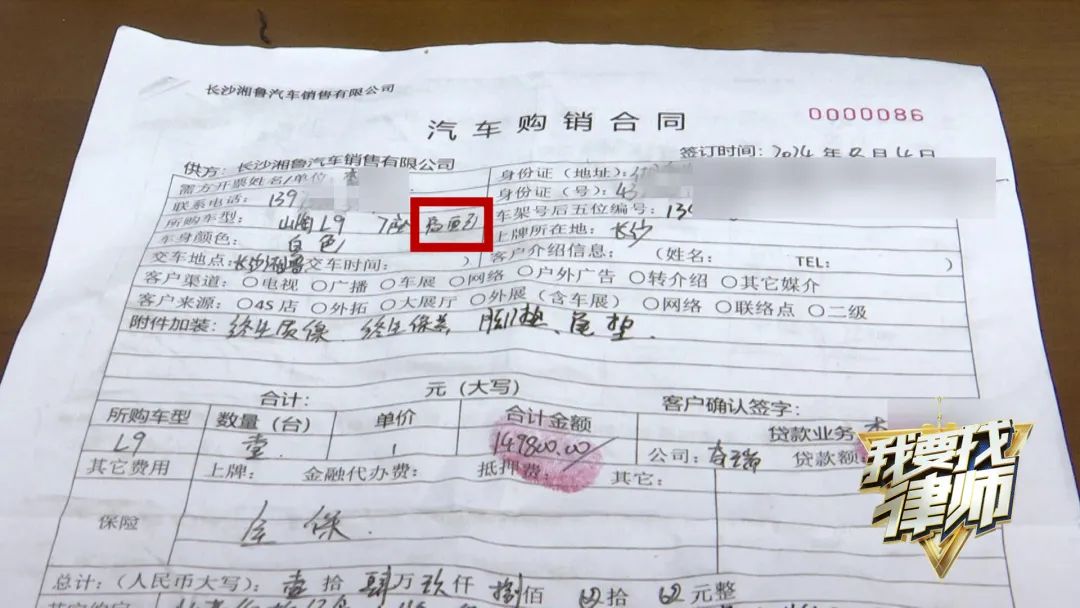 长沙湘鲁汽车销售有限公司
汽车购销合同
0000086
供方：长沙湘鲁汽车销售有限公司
签订时间：2024年 月14日
需方开票姓名/单位
身份证（地址）：
联系电话：139
身份证（号）：43
所购车型：山海L9 7座
车架号后五位编号：134
车身颜色：白色
上牌所在地：长沙
交车地点：长沙湘鲁 交车时间： ）
客户介绍信息：（姓名： TEL： ）
客户渠道：○电视 ○广播 ○车展 ○网络 ○户外广告 ○转介绍 ○其它媒介
客户来源：○4S店 ○外拓 ○大展厅 ○外展（含车展）○网络 ○联络点 ○二级
附件加装：终生质保 终生保养 脚垫、尾垫．
合计： 元（大写） 客户确认签字：
所购车型 数量（台） 单价 合计金额 贷款业务
L9 壹 1 149800.00 公司： 贷款额
其它费用 上牌： 金融代办费： 抵押费： 其它：
保险 全保．
总计：（人民币大写）：壹拾肆万玖仟捌佰 拾 元整
我要找律师